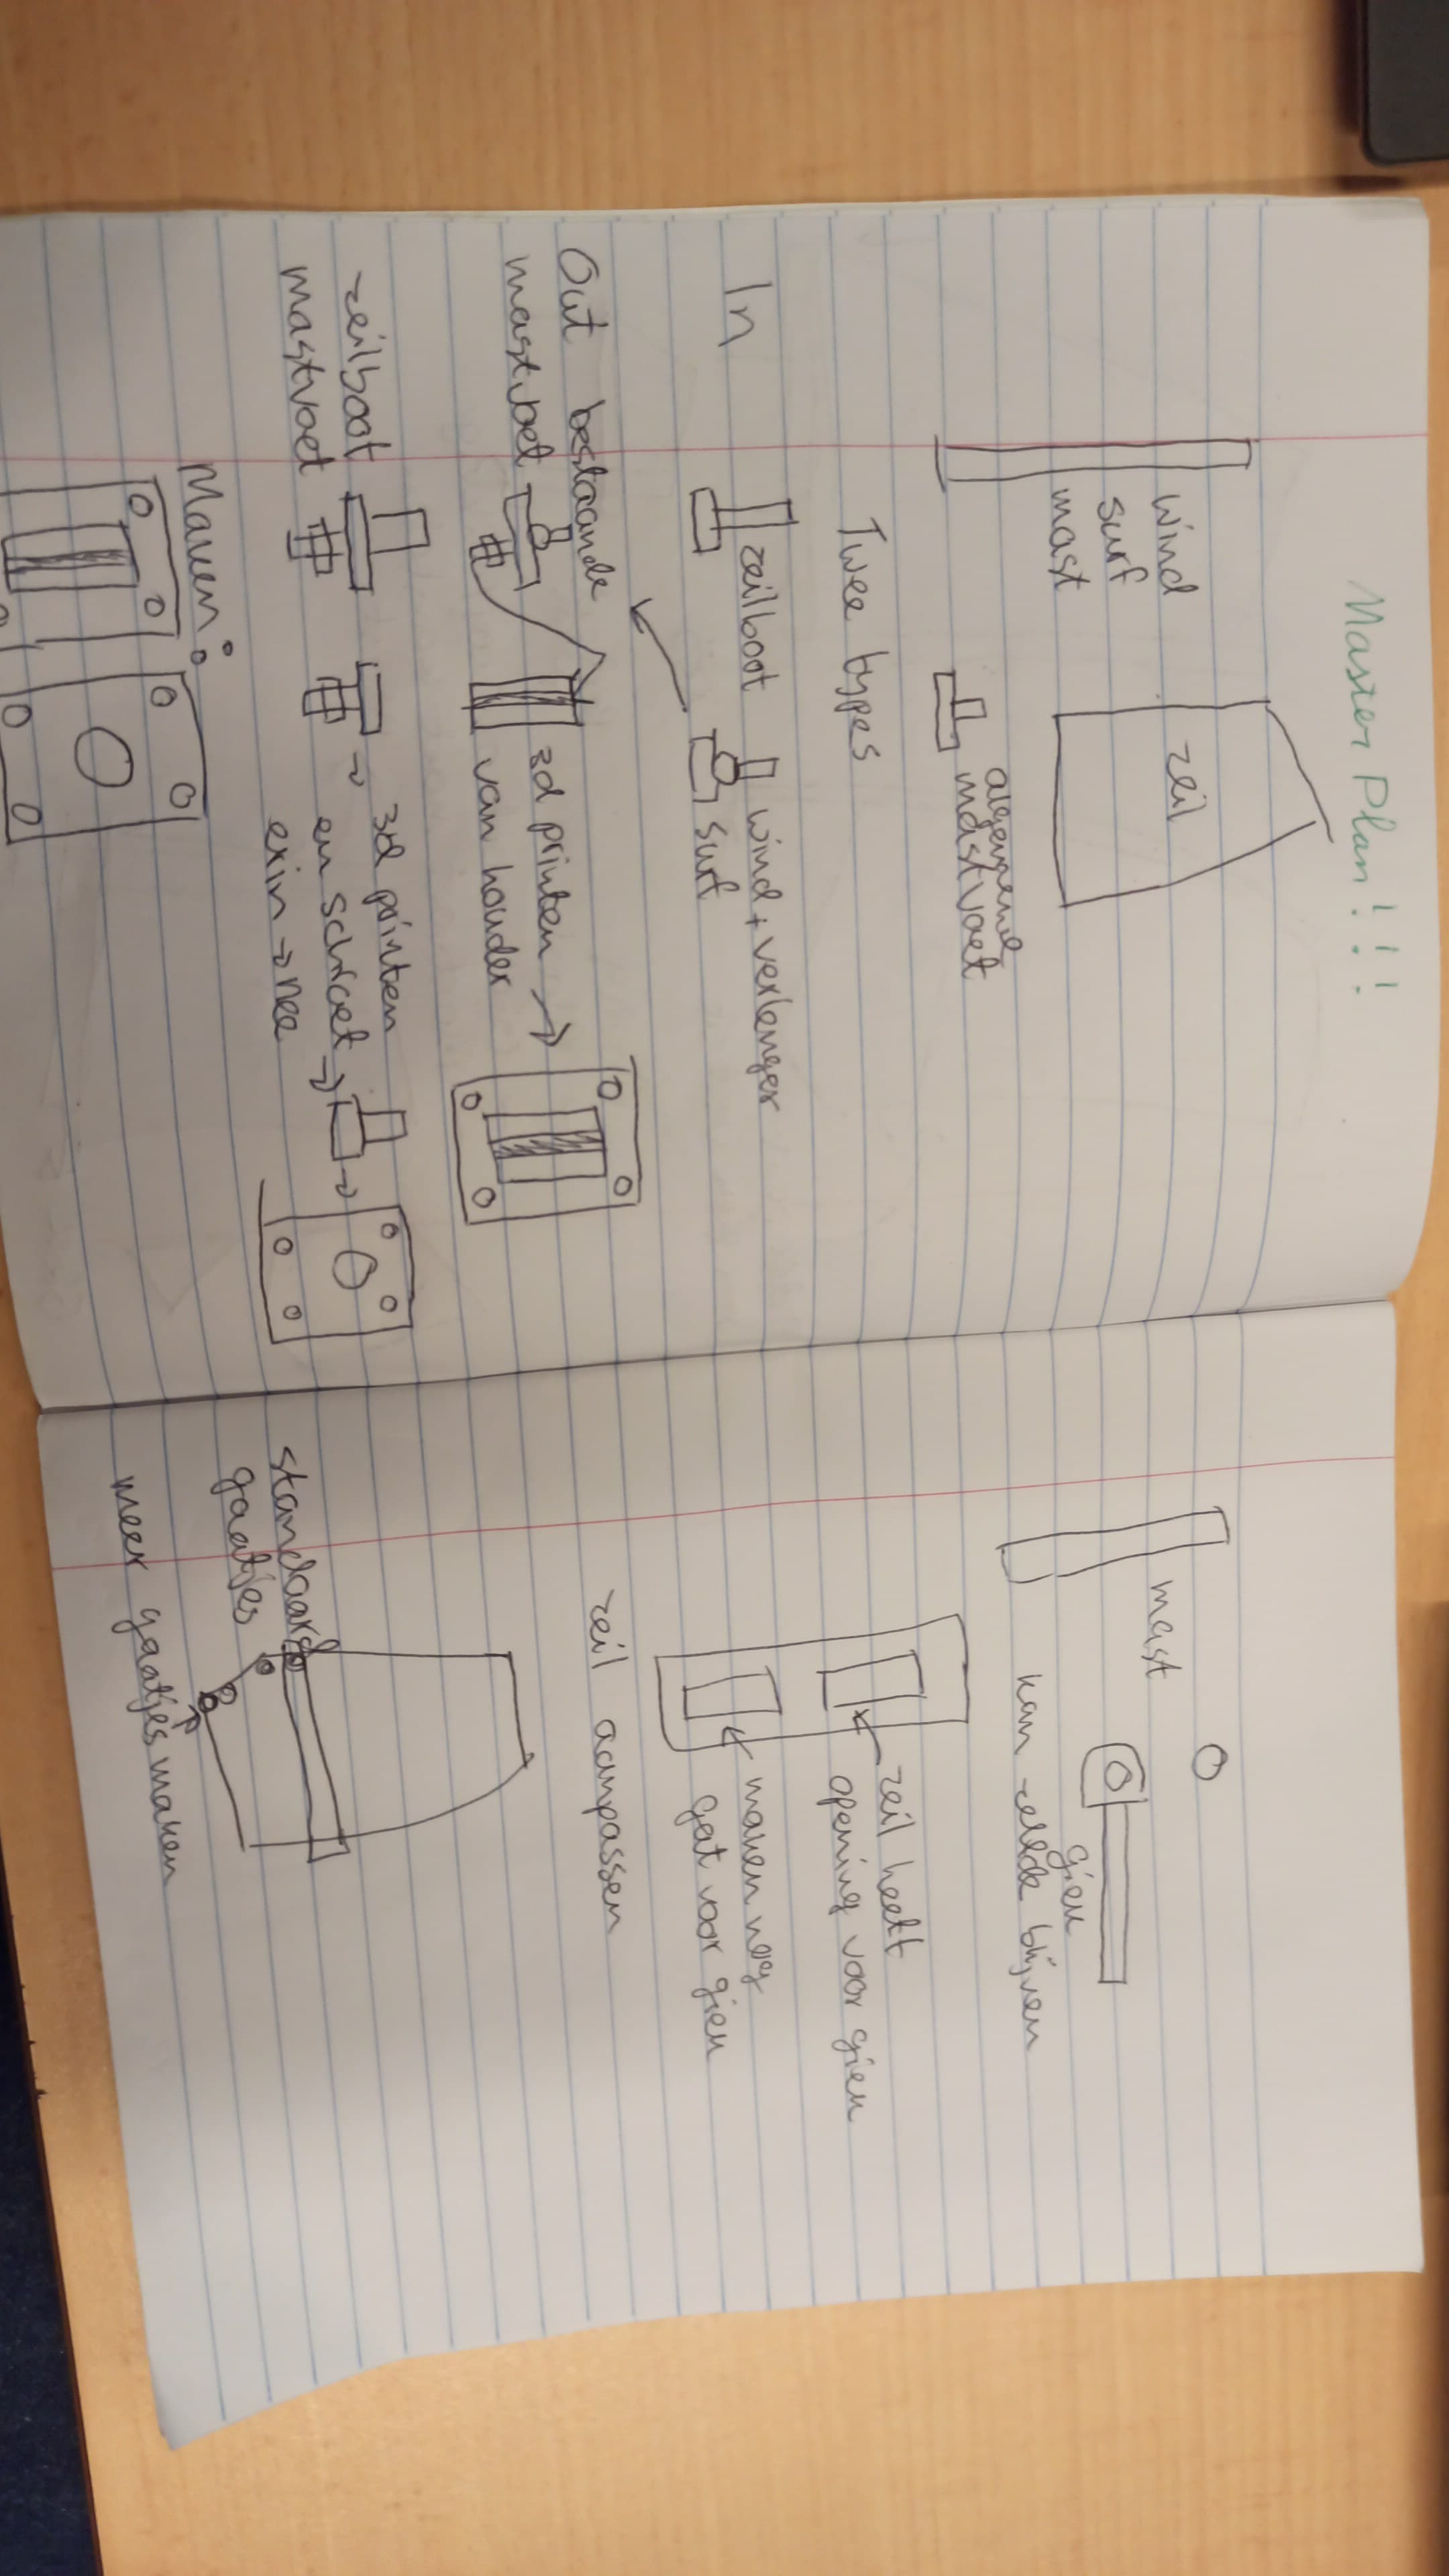 Master Plan!!!
wind
surf
mast
zeil
algemene
mastvoet
Twee types
In
zeilboot
wind + verlenger
surf
Out bestaande
mastvoet
3d printen
van houder
zeilboot
mastvoet
3d printen
en schroet
erin → nee
Maken:
mast
giek
kan zelfde blijven
zeil heeft
opening voor giek
maken nog
gat voor giek
zeil aanpassen
standaard
gaatjes
meer gaatjes maken